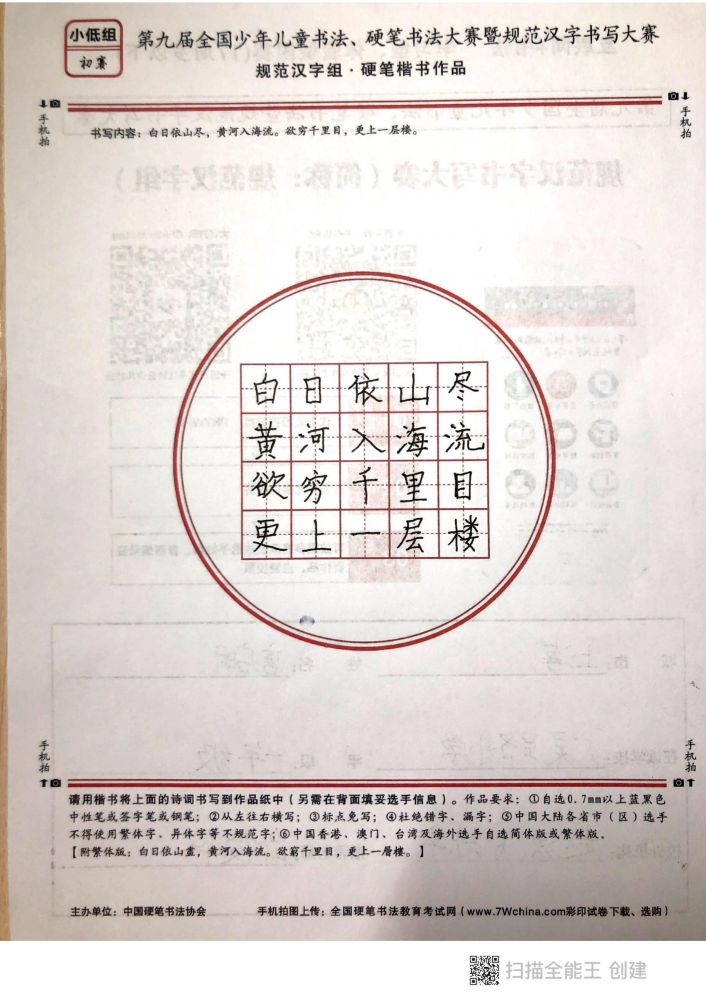 小低组
初赛
第九届全国少年儿童书法、硬笔书法大赛暨规范汉字书写大赛
规范汉字组·硬笔楷书作品
手机拍
手机拍
书写内容：白日依山尽，黄河入海流。欲穷千里目，更上一层楼。
白日依山尽
黄河入海流
欲穷千里目
更上一层楼
手机拍
手机拍
请用楷书将上面的诗词书写到作品纸中（另需在背面填妥选手信息）。作品要求：①自选0.7mm以上蓝黑色
中性笔或签字笔或钢笔；②从左往右横写；③标点免写；④杜绝错字、漏字；⑤中国大陆各省市（区）选手
不得使用繁体字、异体字等不规范字；⑥中国香港、澳门、台湾及海外选手自选简体版或繁体版。
【附繁体版：白日依山盡，黄河入海流。欲窮千里目，更上一層楼。】
主办单位：中国硬笔书法协会
手机拍图上传：全国硬笔书法教育考试网（www.7Wchina.com彩印试卷下载、选购）
扫描全能王 创建